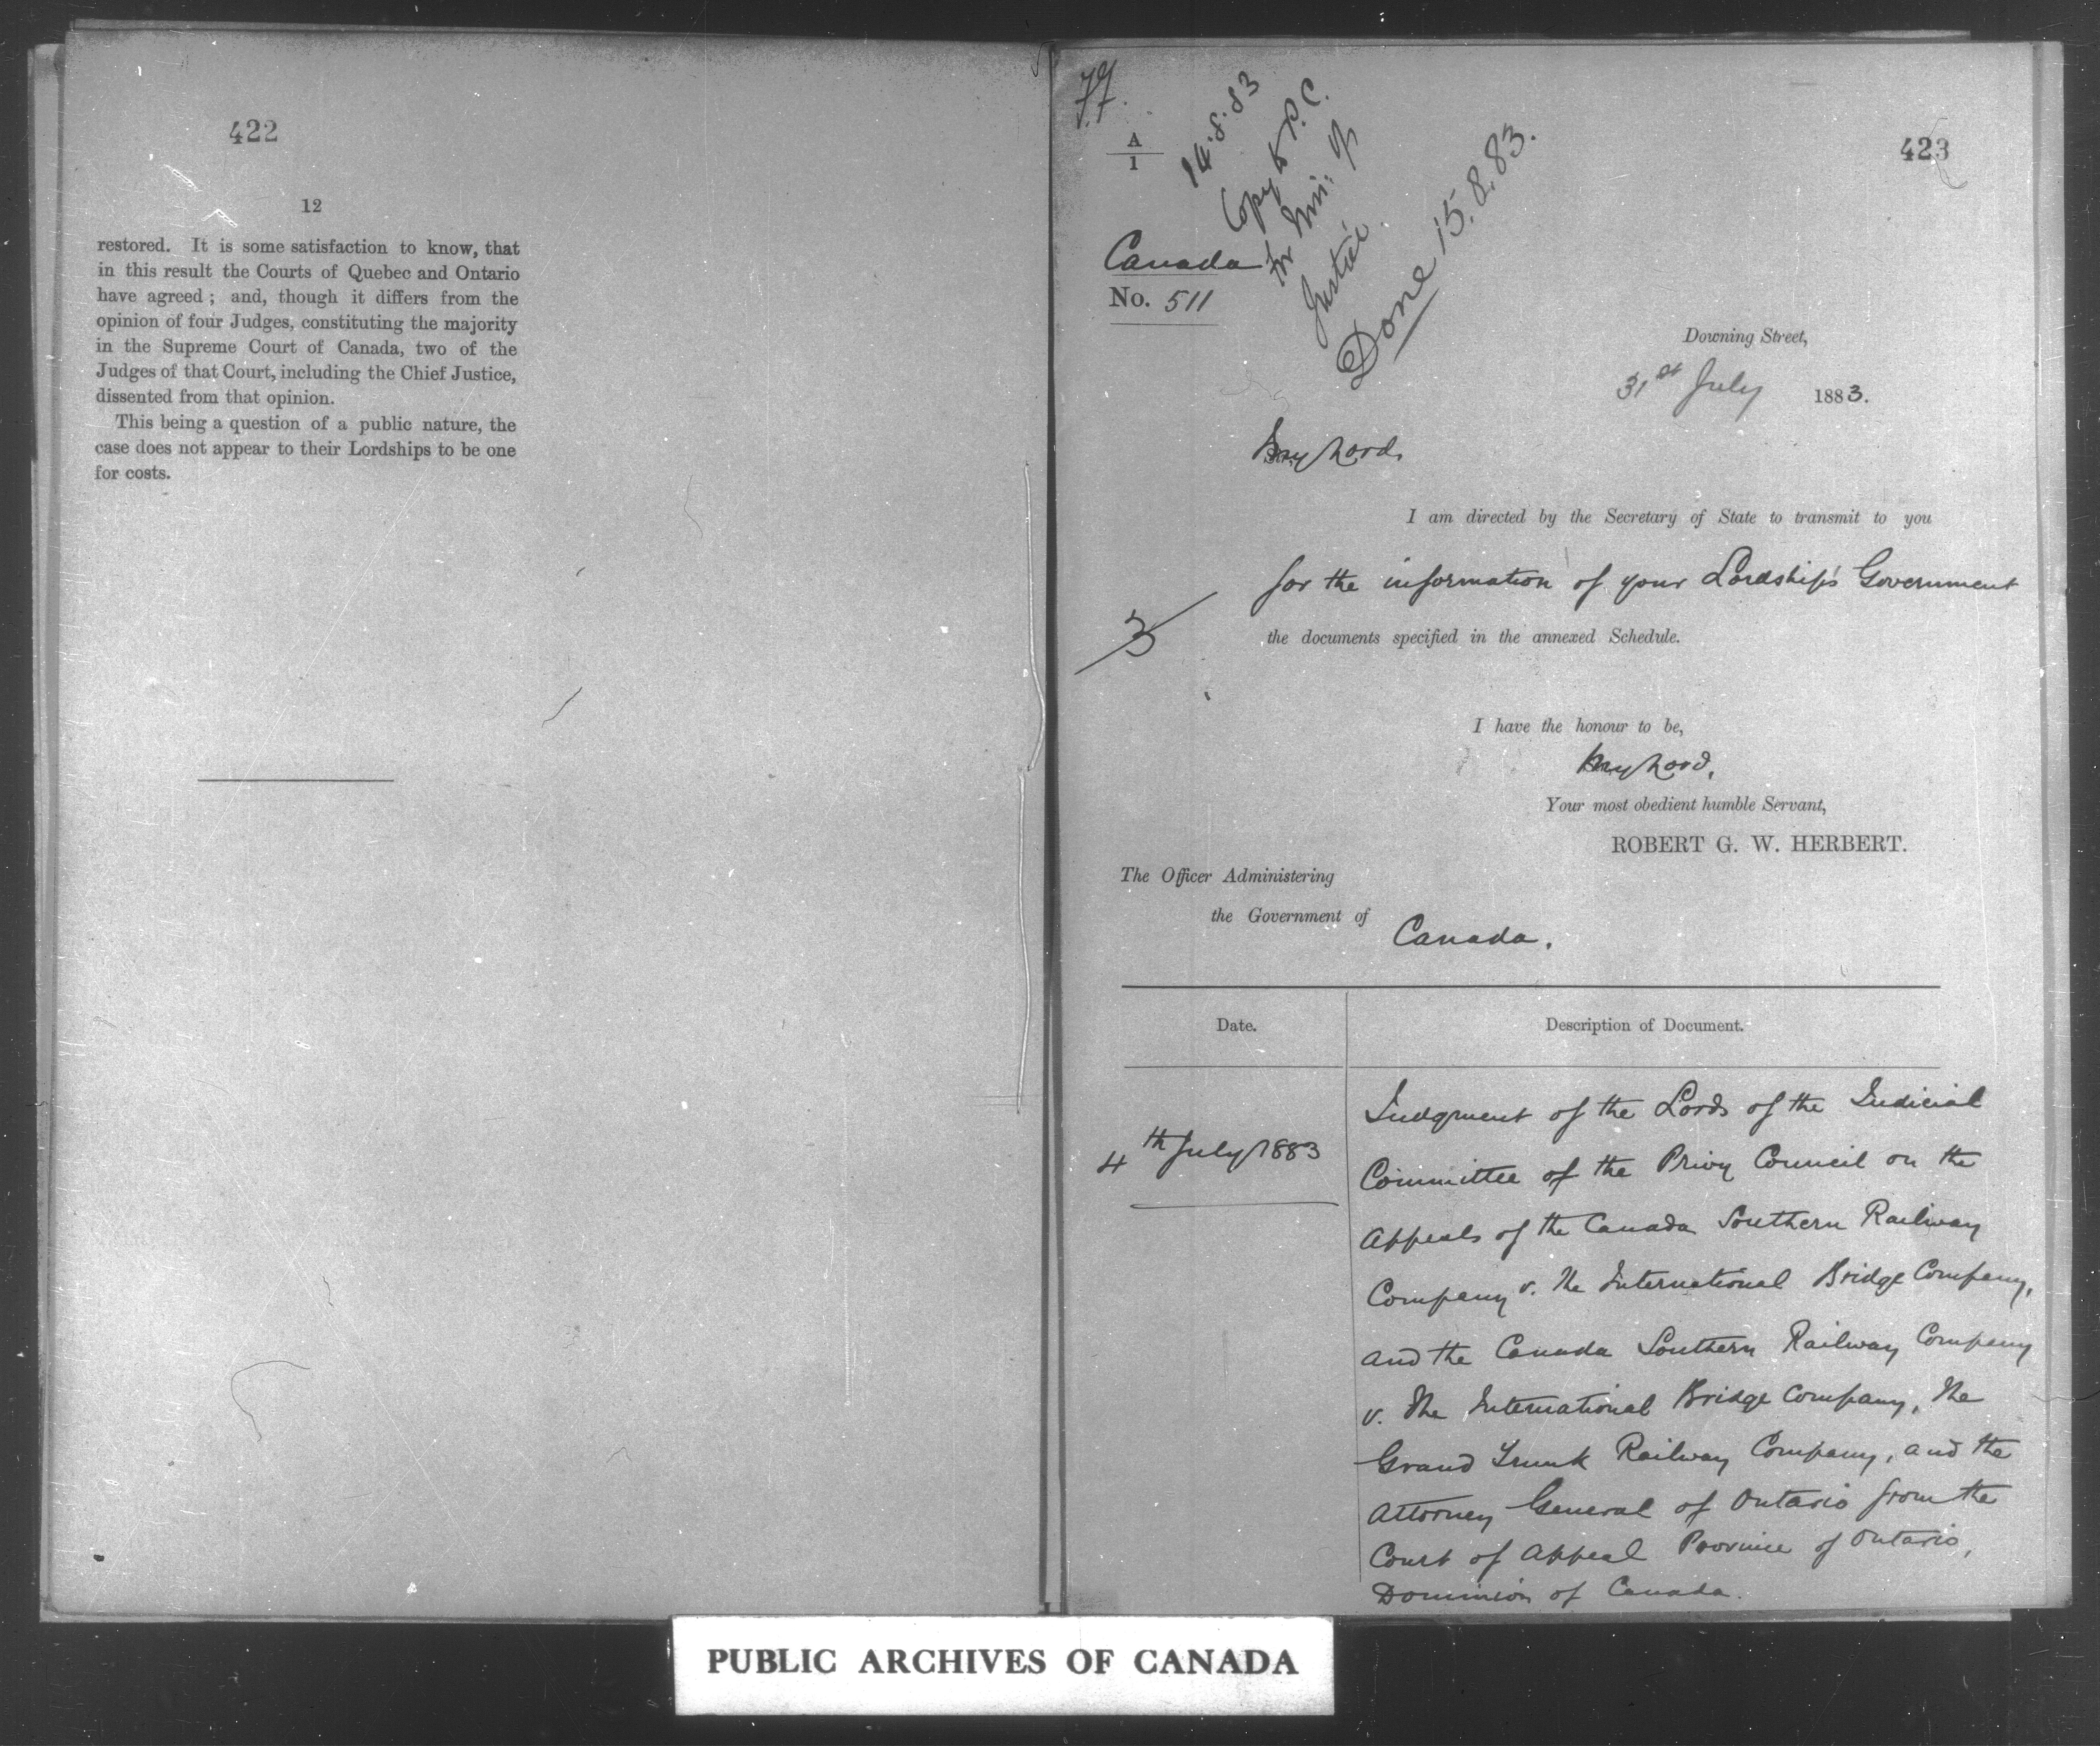 422
12
restored. It is some satisfaction to know, that
in this result the Courts of Quebec and Ontario
have agreed; and, though it differs from the
opinion of four Judges, constituting the majority
in the Supreme Court of Canada, two of the
Judges of that Court, including the Chief Justice,
dissented from that opinion.
This being a question of a public nature, the
case does not appear to their Lordships to be one
for costs.
77.
A
1
14.8.83
Copy to P.C.
for Min: of
Justice.
Done 15.8.83.
423
Canada
No. 511
Downing Street,
31st July 1883.
My Lord,
I am directed by the Secretary of State to transmit to you
for the information of your Lordship's Government
3
the documents specified in the annexed Schedule.
I have the honour to be,
My Lord,
Your most obedient humble Servant,
ROBERT G. W. HERBERT.
The Officer Administering
the Government of
Canada.
Date.
Description of Document.
4th July 1883
Judgment of the Lords of the Judicial
Committee of the Privy Council on the
Appeals of the Canada Southern Railway
Company v. The International Bridge Company,
and the Canada Southern Railway Company
v. The International Bridge Company, The
Grand Trunk Railway Company, and the
Attorney General of Ontario from the
Court of Appeal Province of Ontario,
Dominion of Canada.
PUBLIC ARCHIVES OF CANADA